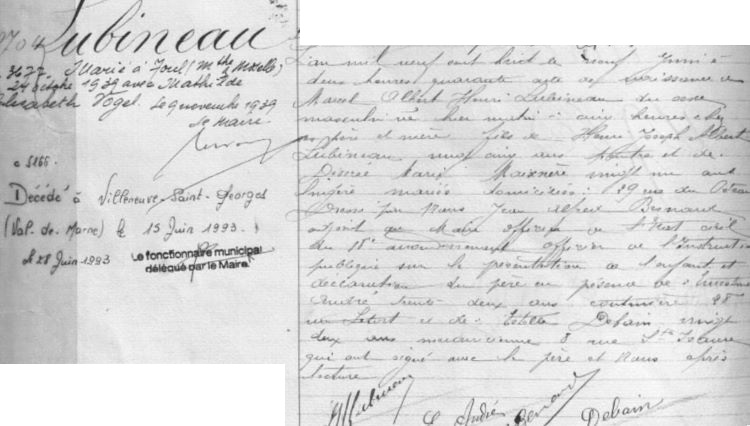 Lubineau
Marié à Toul (Mthe & Mselle)
24 octobre 1939 avec Mathilde
Elisabeth Vogel. Le 9 novembre 1939
Le Maire.
5166.
Décédé à Villeneuve-Saint-Georges
(Val-de-Marne) le 15 Juin 1993.
le 28 Juin 1993
Le fonctionnaire municipal
délégué par le Maire
L'an mil neuf cent huit le neuf Juin à
deux heures quarante acte de naissance de
Marcel Albert Henri Lubineau du sexe
masculin né hier matin à onze heures chez
ses père et mère fils de Henri Joseph Albert
Lubineau vingt cinq ans peintre et de
Désirée Marie vingt un ans
lingère mariés domiciliés 29 rue du
Dressé par Nous Jean Alfred Besnard
adjoint au Maire officier de l'Etat civil
du 18e arrondissement officier de l'Instruction
publique sur la présentation de l'enfant et
déclaration du père en présence de Ernestine
André trente deux ans couturière 28
rue et de Debain vingt
deux ans mécanicienne 8 rue Ste Isaure
qui ont signé avec le père et Nous après
lecture
Lubineau
E. André Besnard Debain